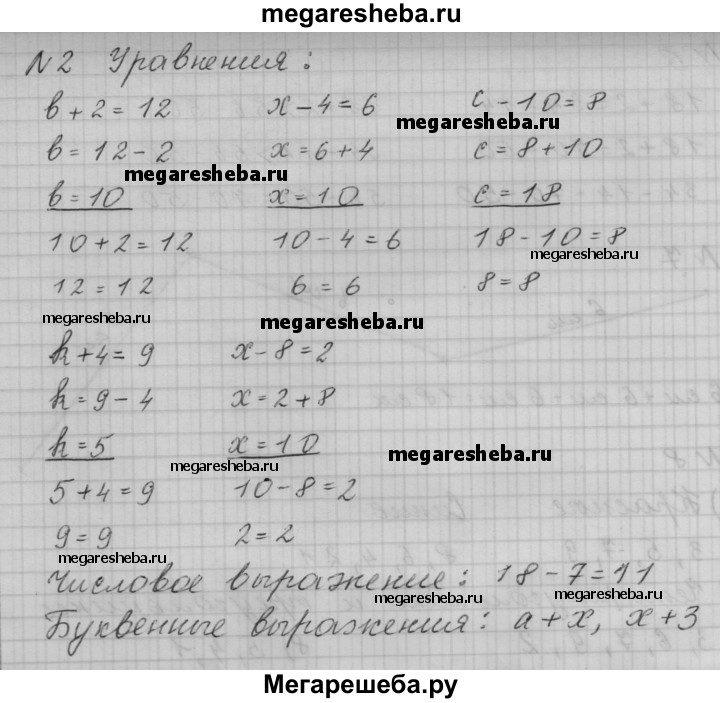 megaresheba.ru
N2 Уравнения:
b + 2 = 12 x - 4 = 6 c - 10 = 8
megaresheba.ru
b = 12 - 2 x = 6 + 4 c = 8 + 10
megaresheba.ru
b = 10 x = 10 c = 18
10 + 2 = 12 10 - 4 = 6 18 - 10 = 8
megaresheba.ru
12 = 12 6 = 6 8 = 8
megaresheba.ru
megaresheba.ru
k + 4 = 9 x - 8 = 2
k = 9 - 4 x = 2 + 8
k = 5 x = 10
megaresheba.ru
megaresheba.ru
5 + 4 = 9 10 - 8 = 2
9 = 9 2 = 2
megaresheba.ru
megaresheba.ru
Числовое выражение: 18 - 7 = 11
megaresheba.ru
megaresheba.ru
Буквенные выражения: a + x, x + 3
Мегарешеба.ру